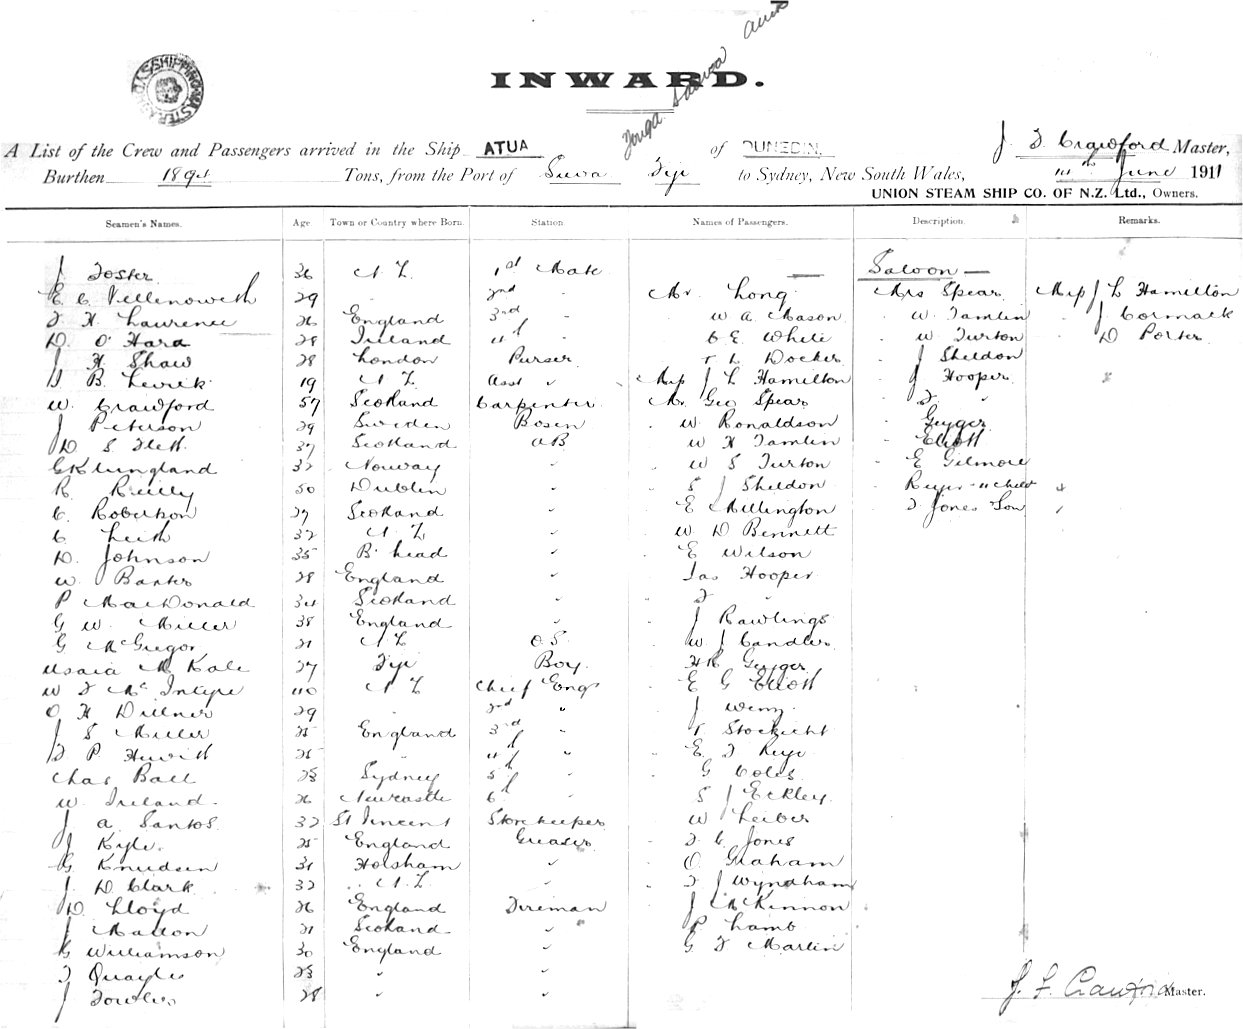 Tonga Samoa and
INWARD.
A List of the Crew and Passengers arrived in the Ship ATUA of DUNEDIN, J F Crawford Master,
Burthen Tons, from the Port of Suva Fiji to Sydney, New South Wales, June 1911
UNION STEAM SHIP CO. OF N.Z. Ltd., Owners.
Seamen's Names. Age Town or Country where Born. Station. Names of Passengers. Description. Remarks.
Saloon
J Foster 36 N Z 1st Mate
E C 29 " 2nd " Mr Long Mrs Spear Miss J L Hamilton
F H Laurence 26 England 3rd " " W A Mason " W Tamlin " J Cormack
D O'Hara 28 Ireland 4th " " C E White " W Turton " D Porter
J H Shaw 28 London Purser " L Docker " J Sheldon
B 19 N Z Asst " Miss J L Hamilton " J Hooper
W Crawford 57 Scotland Carpenter Mr Geo Spear " F "
J Peterson 29 Sweden Bosen " W Ronaldson " Geyger
D S Flett 37 Scotland AB " W H Tamlin " Eliott
G Klungland 32 Norway " " W S Turton " E Gilmore
R Reilly 50 Dublin " " S J Sheldon " & child
C Robertson 27 Scotland " " E Millington " F Jones & Son
C Leith 32 N Z " " W D Bennett
D. Johnson 35 B'head " " E Wilson
W Banks 28 England " Jas Hooper
P MacDonald 34 Scotland " " F "
G W Miller 38 England " " J Rawlings
G McGregor 21 N Z O S " W J Candler
Usaia M Kale 27 Fiji Boy " H R Geyger
W F McIntyre 40 N Z Chief Engr " E G Eliott
O H Dillner 29 " 2nd " " J
J S Miller 25 England 3rd " "
F P Hewitt 25 " 4th " " E F
Chas Ball 23 Sydney 5th " " G Coles
W. Ireland 26 Newcastle 6th " " S J Eckley
J A Santos 32 St Vincent Storekeeper " W Leiber
J Kyle 25 England Greaser " F C Jones
G Knudsen 31 Horsham " " O Graham
J. D Clark 32 N Z " " F J Wyndham
D Lloyd 26 England Fireman " J McKinnon
J Matton 21 Scotland " " P Lamb
G Williamson 30 England " " G F Martin
F Quayle 23 " "
J Fowler 28 " "
J. F. Crawford Master.